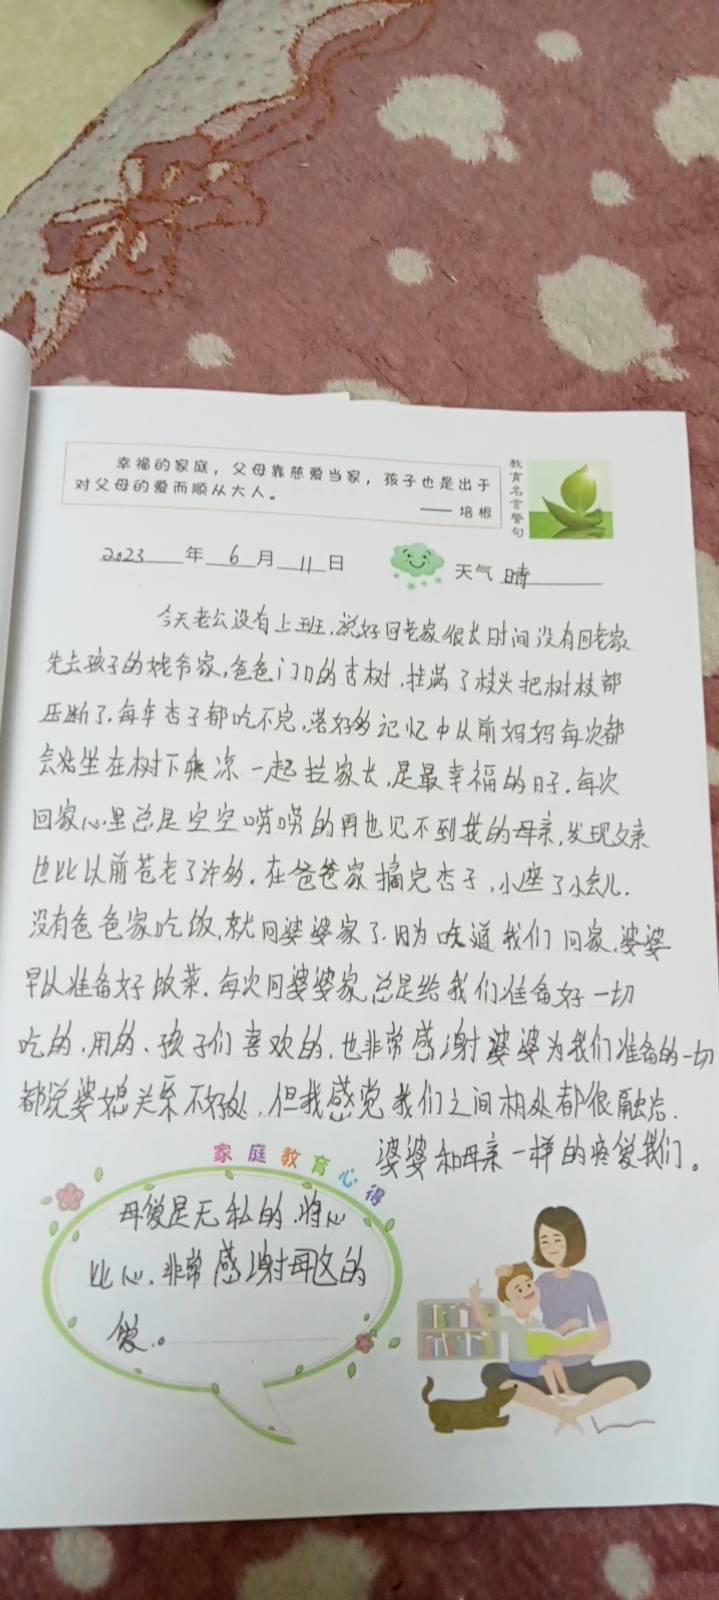 幸福的家庭，父母靠慈爱当家，孩子也是出于
对父母的爱而顺从大人。
—— 培根
教育名言警句
2023年6月11日
天气 晴
今天老公没有上班,说好回老家很长时间没有回老家
先去孩子的姥爷家,爸爸门口的杏树,挂满了枝头把树枝都
压断了.每年杏子都吃不完,记忆中从前妈妈每次都
会坐在树下乘凉一起拉家长,是最幸福的日子.每次
回家心里总是空空唠唠的再也见不到我的母亲,发现父亲
也比以前苍老了许多.在爸爸家摘完杏子,小座了小会儿.
没有爸爸家吃饭,就回婆婆家了.因为知道我们回家,婆婆
早以准备好饭菜.每次回婆婆家,总是给我们准备好一切
吃的,用的、孩子们喜欢的,也非常感谢婆婆为我们准备的一切
都说婆媳关系不好处,但我感觉我们之间相处都很融洽.
婆婆和母亲一样的疼爱我们。
家庭教育心得
母爱是无私的.将心
比心.非常感谢母这的
爱.。